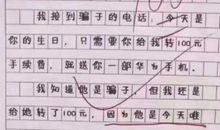 100
我接到骗子的电话，今天是
你的生日，只需要你给我转100元
手续费，就送你一部华为手机。
我知道他是骗子，但我还是
给她转了100元，因为他是今天唯